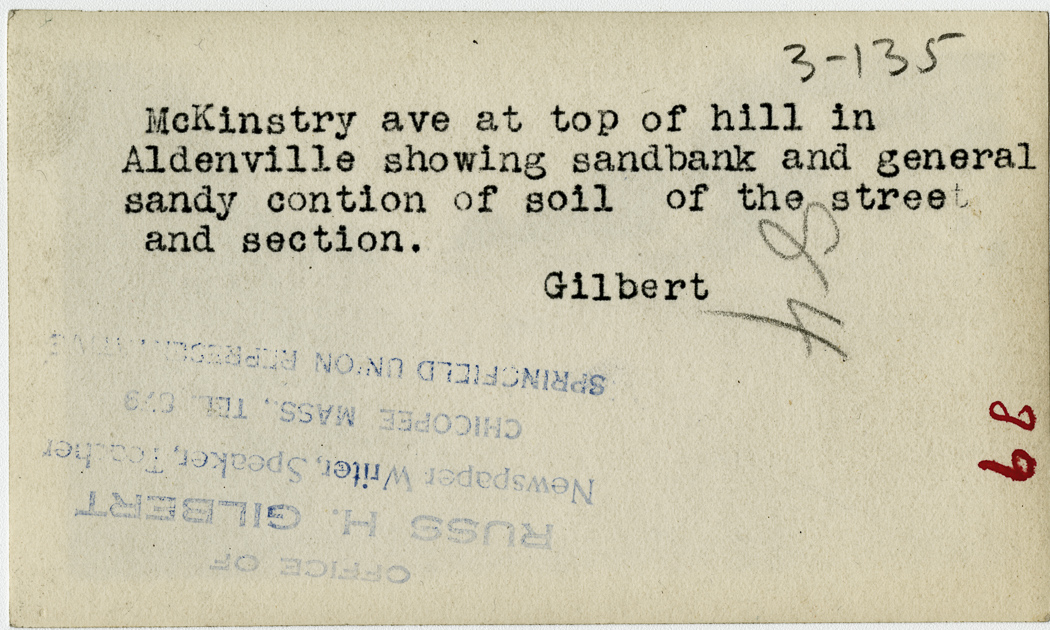 3-135
McKinstry ave at top of hill in
Aldenville showing sandbank and general
sandy contion of soil of the street
and section.
Gilbert
OFFICE OF
RUSS H. GILBERT
Newspaper Writer, Speaker, Teacher
CHICOPEE MASS., TEL.
SPRINGFIELD UNION REPRESENTATIVE